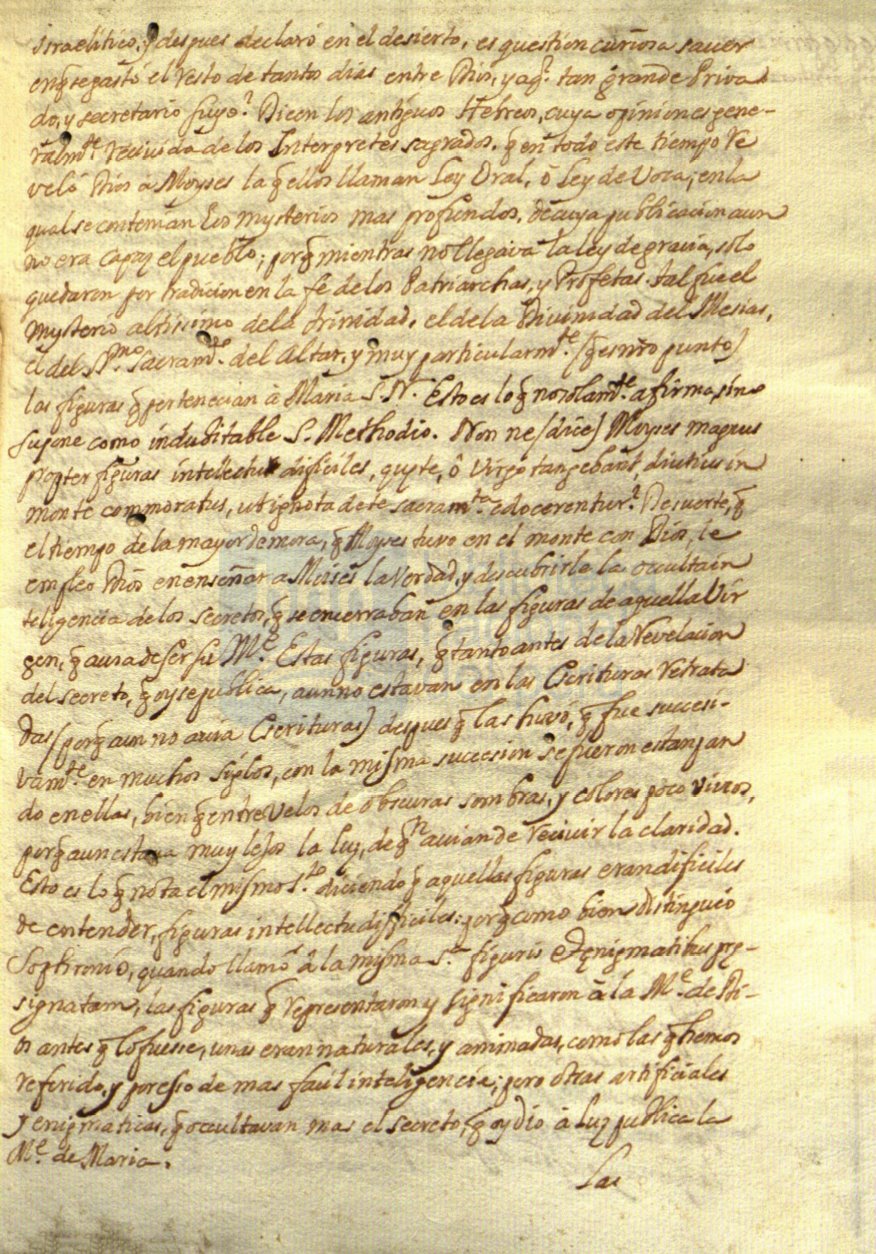 Israelitico; y despues declaró en el desierto, es question curiosa saver
en q̃ se gastó el resto de tantos dias entre Dios, y aq.l tan grande Priva
do, y secretario suyo? Dicen los antiguos Hebreos, cuya opinion es gene-
ralm.te recivida de los Interpretes sagrados, q̃ en todo este tiempo re
veló Dios à Moyses la q̃ ellos llaman Ley Oral, ò Ley de Voca; en la
qual se contenian los mysterios mas profundos, de cuya publicacion aun
no era capaz el pueblo; porq̃ mientras no llegava la ley de gracia, solo
quedaron por tradicion en la fe de los Patriarchas, y Profetas. tal fue el
mysterio altissimo de la trinidad, el de la Divinidad del Mesias,
el del S.mo Sacram.to del Altar, y muy particularm.te (q̃ es nr̃o punto)
las figuras q̃ pertenecian à Maria S. N. Esto es lo q̃ no solam.te afirma, sino
supone como indubitable S. Methodio. Non ne (dice) Moyses magnus
propter figuras intellectu dificiles, quę te, ô Virgo tangebant, diutius in
monte commoratus, ut ignota de te sacram.ta edocerentur? De suerte, q̃
el tiempo de la mayor demora, q̃ Moyses tuvo en el monte con Dios, le
empleo Dios en enseñar a Moises la verdad, y descubrirle la occulta in
teligencia de los secretos, q̃ se encerraban en las figuras de aquella Vir
gen, q̃ avia de ser su M.e Estas figuras, q̃ tanto antes de la revelacion
del secreto, q̃ oy se publica, aun no estavan en las Escrituras retrata
das (porq̃ aun no avia Escrituras) despues q̃ las huvo, q̃ fue succesi-
vam.te en muchos siglos, con la misma sucession se fueron estanpan
do en ellas, bien q̃ entre velos de obscuras sombras, y colores poco vivos,
porq̃ aun estava muy lejos la luz, de q.n avian de recivir la claridad.
Esto es lo q̃ nota el mismo S.to diciendo q̃ aquellas figuras eran dificiles
de entender, figuras intellectu difficiles: porq̃ como bien distinguió
Sophronio, quando llamó à la misma S.ra figuris & ęnigmatibus prę-
signatam, las figuras q̃ representaron y significaron à la M.e de Di-
os antes q̃ lo fuesse, unas eran naturales, y animadas, como las q̃ hemos
referido, y por esso de mas facil inteligencia; pero otras artificiales
y enigmaticas, q̃ occultavan mas el secreto, q̃ oy dio à luz publica la
M.e de Maria.
Las